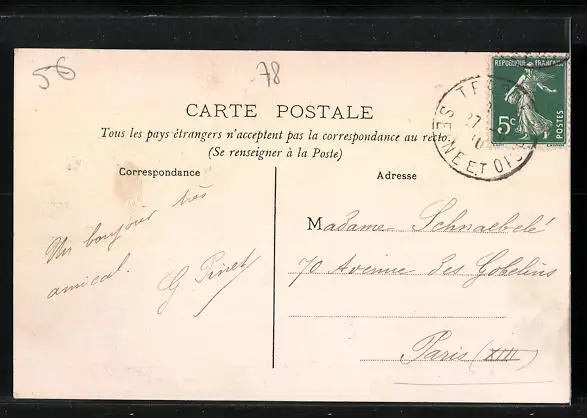 56
78
REPUBLIQUE FRANÇAISE
5c
POSTES
SEINE ET OISE
CARTE POSTALE
Tous les pays étrangers n'acceptent pas la correspondance au recto
(Se renseigner à la Poste)
Correspondance
Un bonjour très
amical.
G. Pinet
Adresse
Madame Schnaebelé
70 Avenue des Gobelins
Paris (XIII)